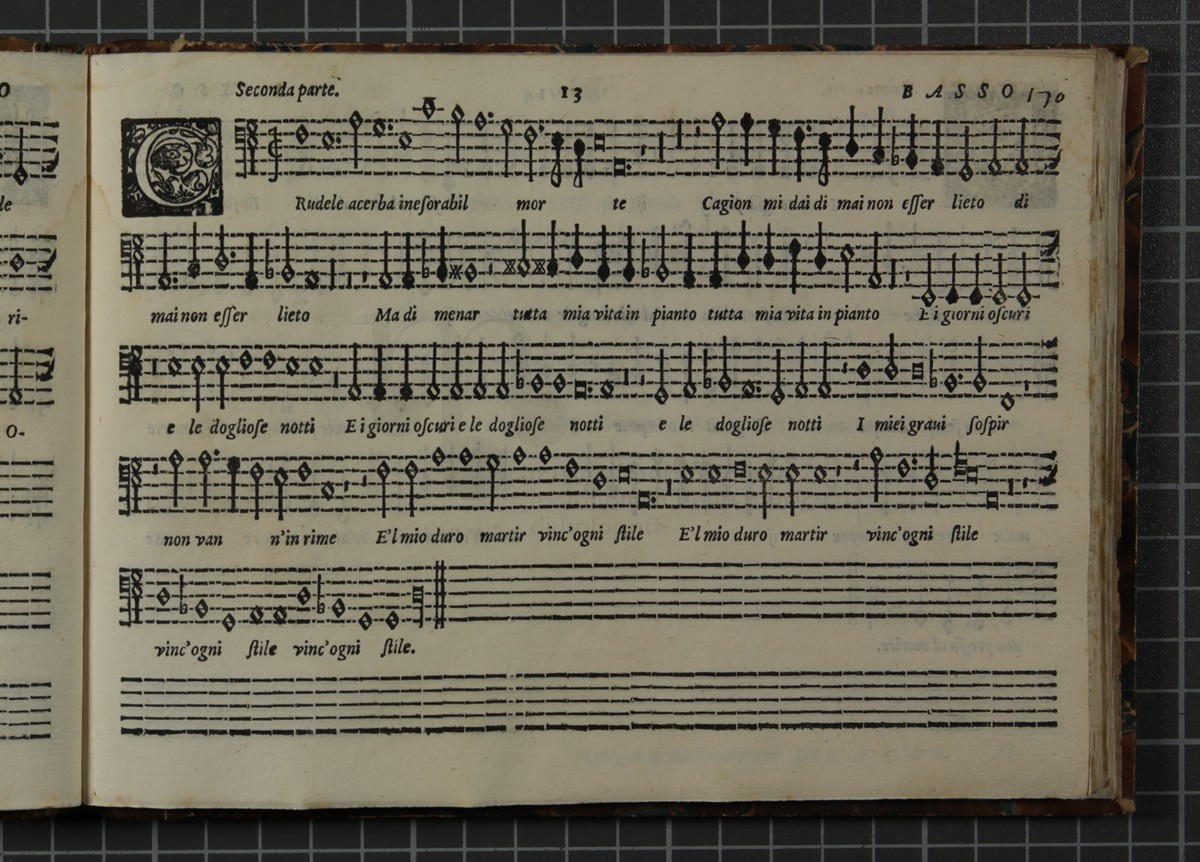 O
Seconda parte.
13
BASSO 170
le
CRudele acerba ineſorabil mor te Cagion mi dai di mai non eſſer lieto di
ri-
mai non eſſer lieto Ma di menar tutta mia vita in pianto tutta mia vita in pianto E i giorni oſcuri
O-
e le doglioſe notti E i giorni oſcuri e le doglioſe notti e le doglioſe notti I miei graui ſoſpir
non van n'in rime E'l mio duro martir vinc'ogni ſtile E'l mio duro martir vinc'ogni ſtile
vinc'ogni ſtile vinc'ogni ſtile.